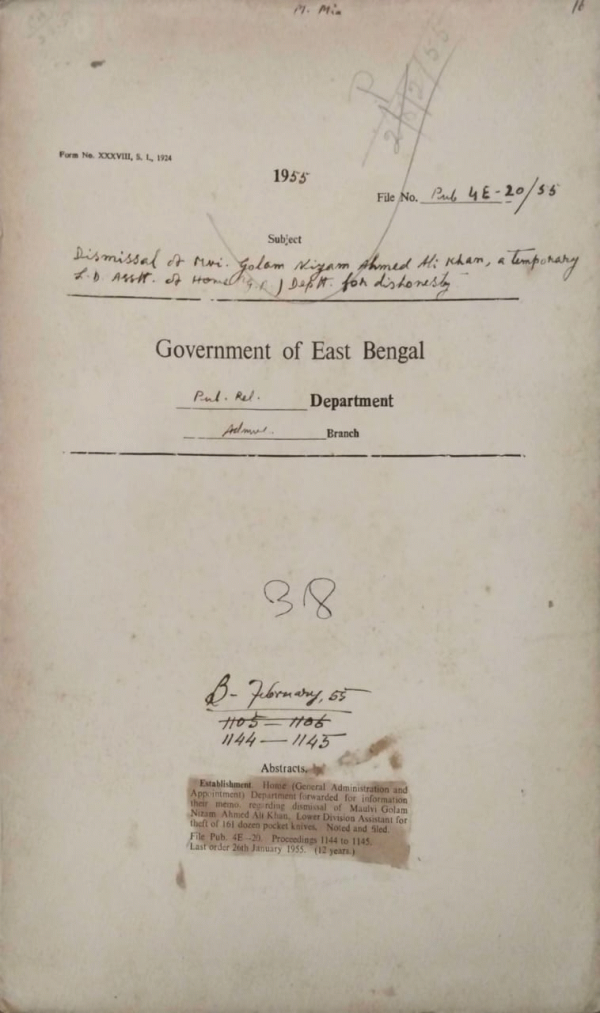 M. Mia
16
26/2/55
Form No. XXXVIII, S. I., 1924
1955
File No. Pub 4E-20/55
Subject
Dismissal of Mvi. Golam Nizam Ahmed Ali Khan, a temporary
L.D. Asstt. of Home (G.A.) Deptt. for dishonesty
Government of East Bengal
Pub. Rel. Department
Admn. Branch
38
B- February, 55
1105 — 1106
1144 — 1145
Abstracts.
Establishment Home (General Administration and
Appointment) Department forwarded for information
their memo. regarding dismissal of Maulvi Golam
Nizam Ahmed Ali Khan, Lower Division Assistant for
theft of 161 dozen pocket knives. Noted and filed.
File Pub. 4E—20. Proceedings 1144 to 1145.
Last order 26th January 1955. (12 years.)